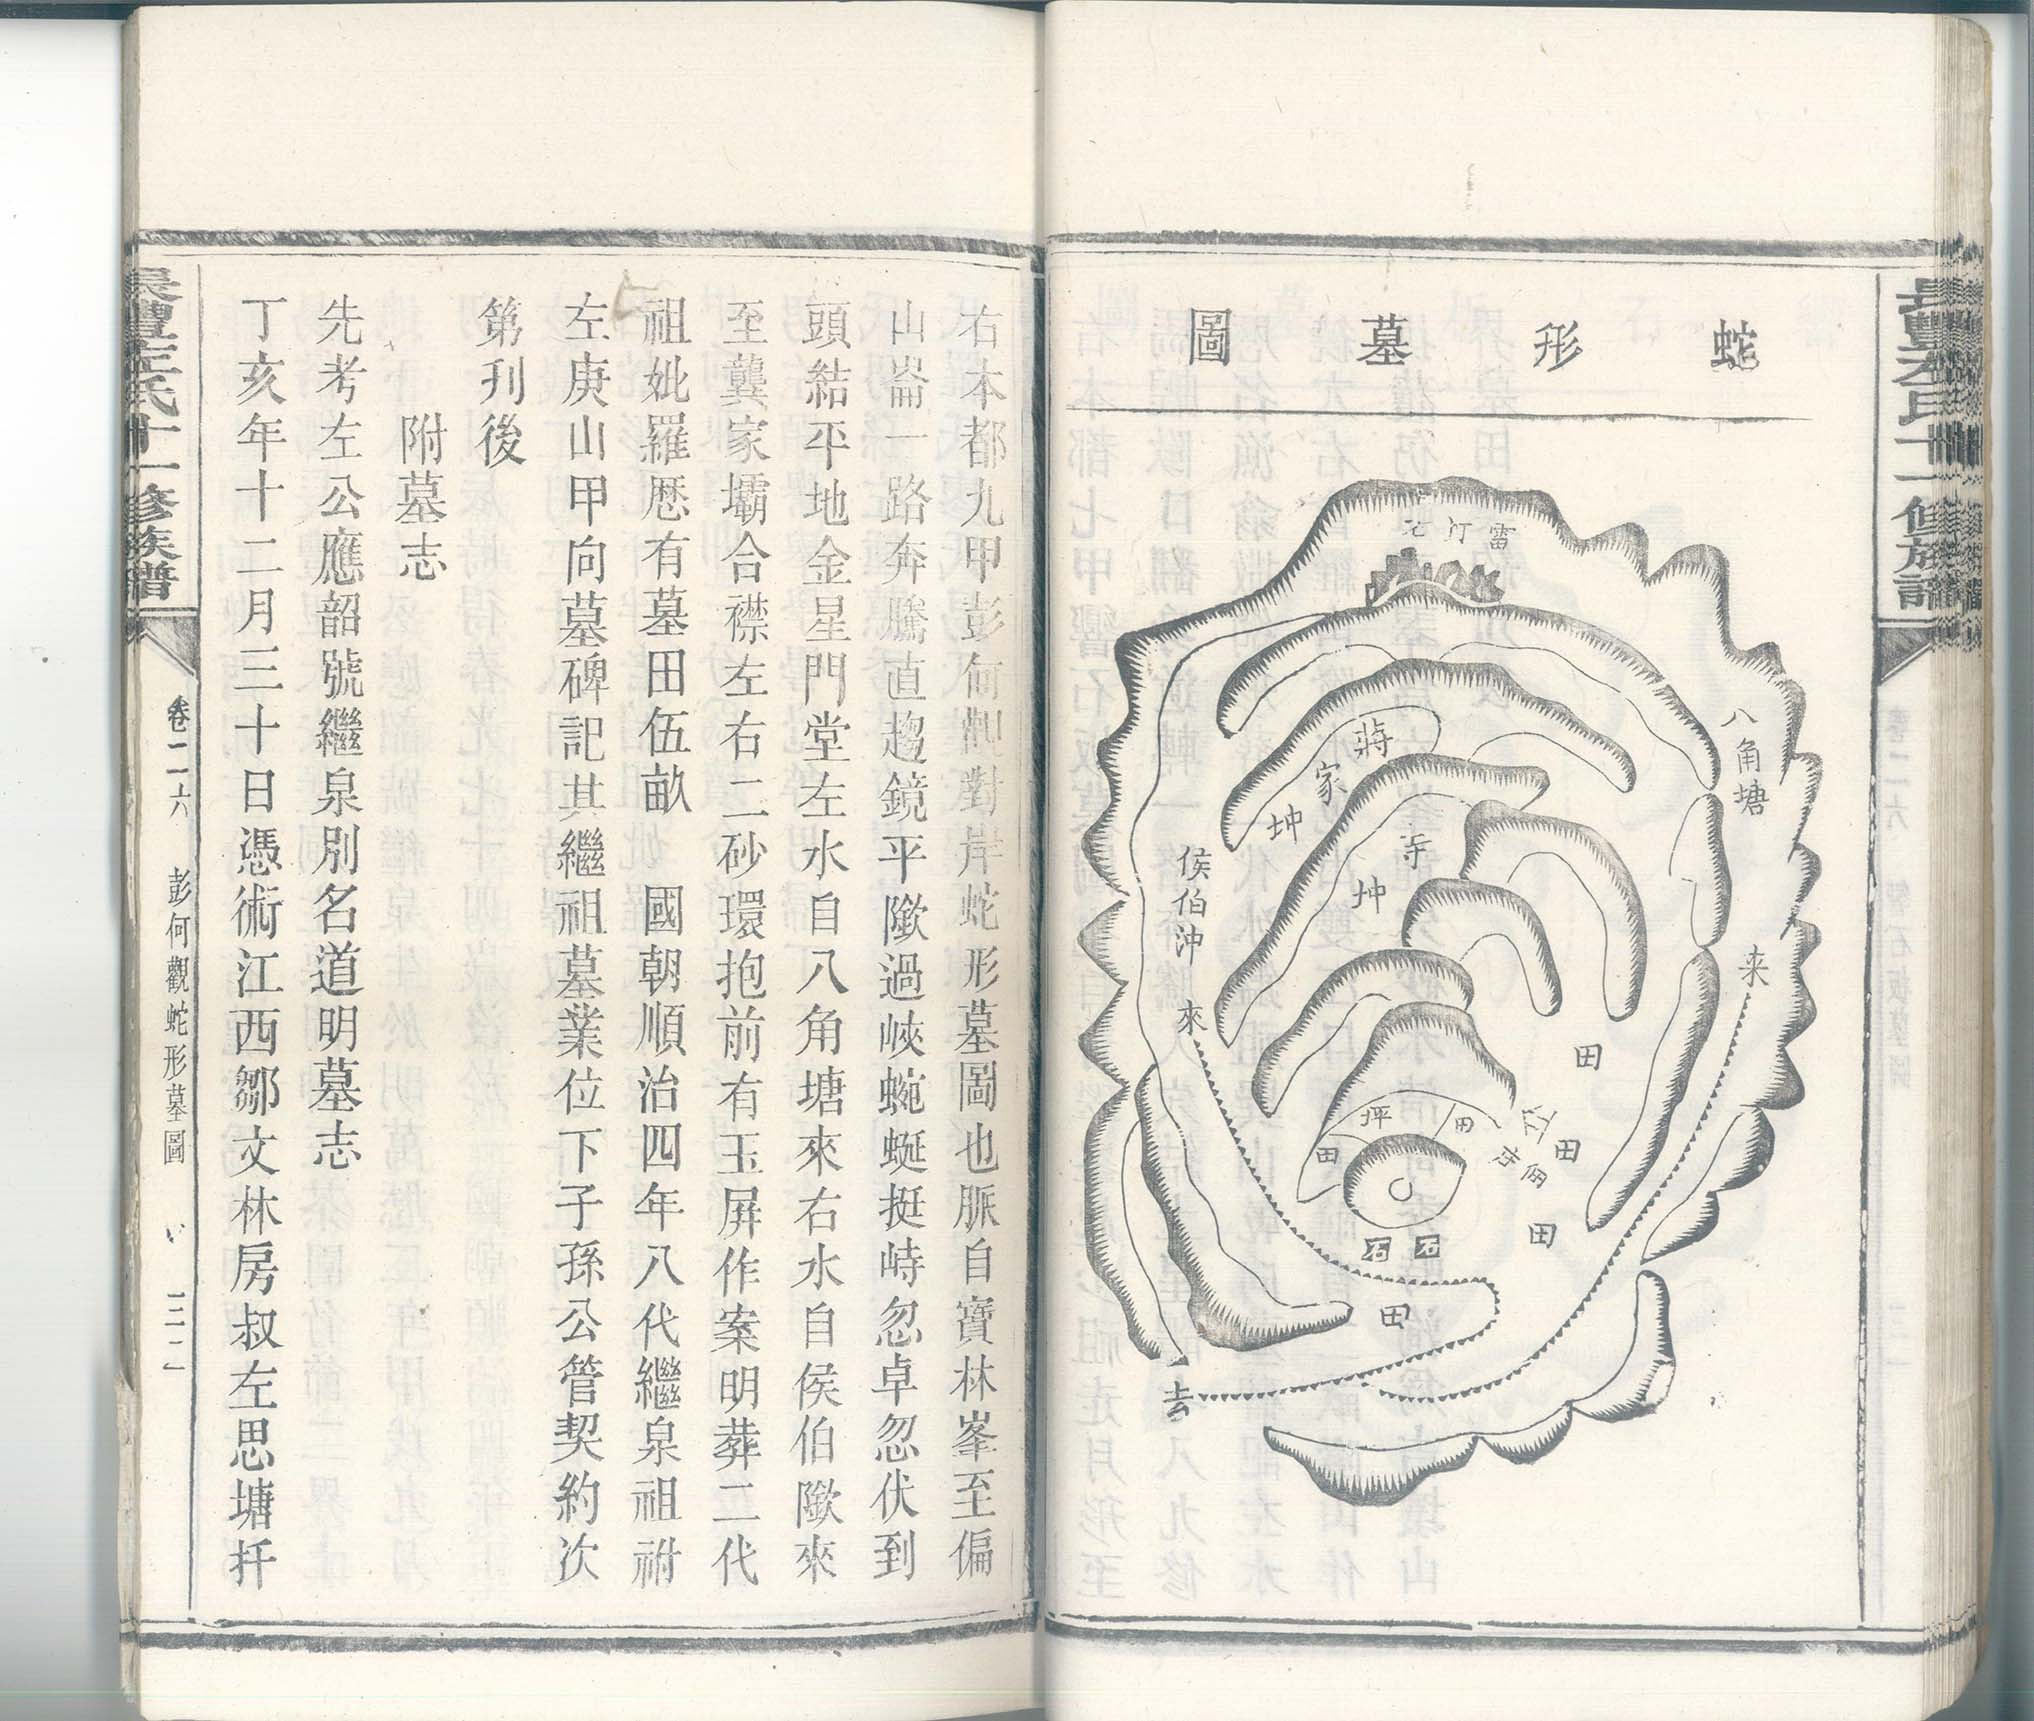 長豐左氏十一修族譜
蛇形墓圖
雷打石
八角塘
蔣家坤
寺坤
侯伯沖
來
来
田
坪
田
田
田
田
石
石
田
去
右本都九甲彭何觀對岸蛇形墓圖也脈自寶林峯至偏
山崙一路奔騰直趨鏡平隞過峽蜿蜒挺峙忽卓忽伏到
頭結平地金星門堂左水自八角塘來右水自侯伯隞來
至龔家壩合襟左右二砂環抱前有玉屏作案明葬二代
祖妣羅厯有墓田伍畝 國朝順治四年八代繼泉祖祔
左庚山甲向墓碑記其繼祖墓業位下子孫公管契約次
第刊後
附墓志
先考左公應韶號繼泉別名道明墓志
丁亥年十二月三十日憑術江西鄒文林房叔左思塘扦
長豐左氏十一修族譜
卷二六 彭何觀蛇形墓圖 三二